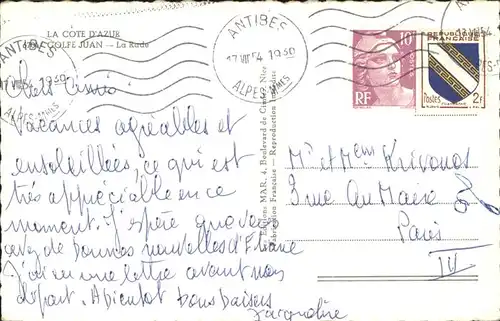 LA COTE D'AZUR
GOLFE JUAN — La Rade
ANTIBES
17 VII 54 1930
ALPES-MMES
ANTIBES
17 VII 54 1930
ALPES-MMES
10F
POSTES
RF
REPUBLIQUE
FRANÇAISE
Postes
2F
Chers Amis
Vacances agréables et
ensoleillées, ce qui est
très appréciable en ce
moment. J'espère que vous
avez de bonnes nouvelles d'Eliane
J'ai eu une lettre avant mon
départ. A bientôt bons baisers
Jacqueline
Editions MAR, 4, Boulevard de Cimiez, Nice
Fabrication Française — Reproduction Interdite
Mr et Mme Krivonos
3 rue au Maire
Paris